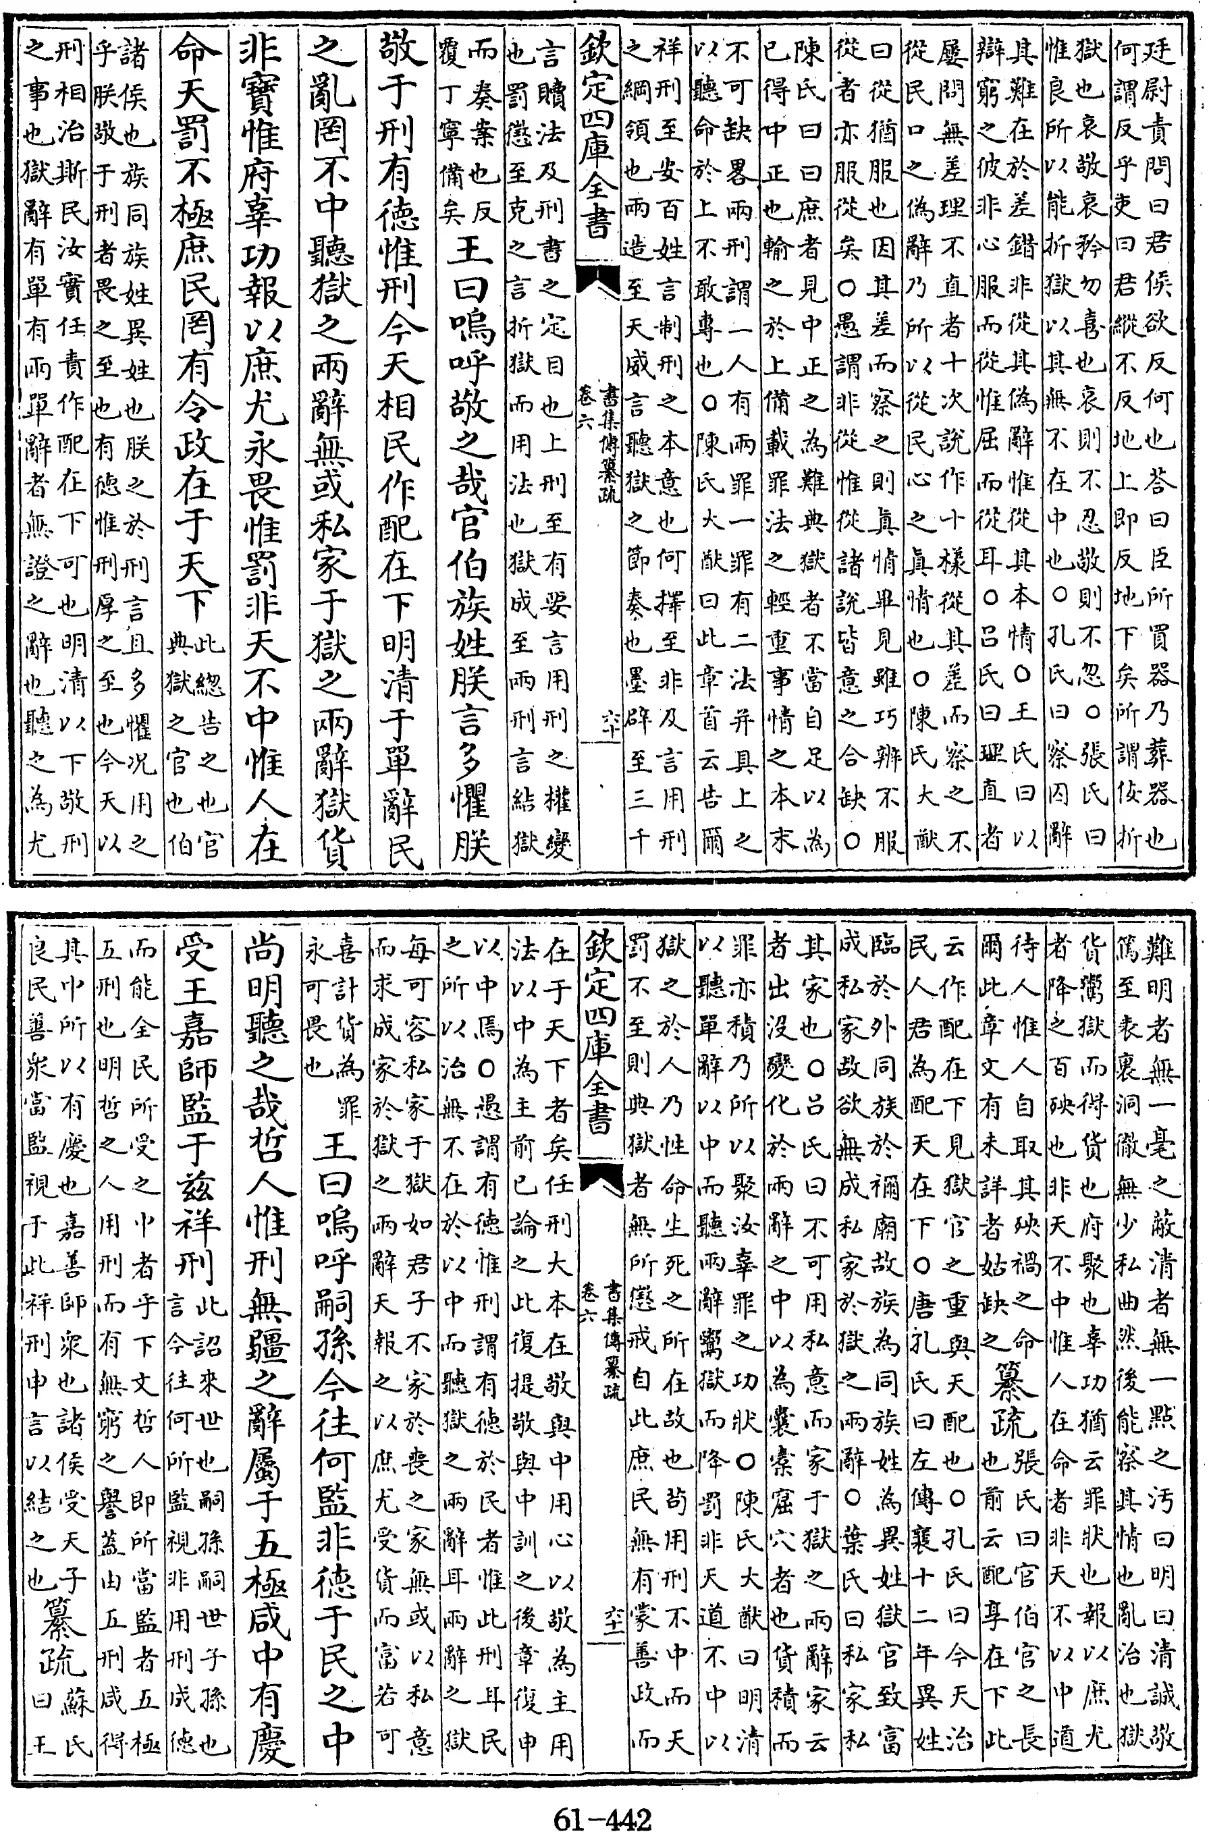 廷尉責問曰君侯欲反何也答曰臣所買器乃葬器也
何謂反乎吏曰君縱不反地上即反地下矣所謂佞折
獄也哀敬哀矜勿喜也哀則不忍敬則不忽○張氏曰
惟良所以能折獄以其無不在中也○孔氏曰察囚辭
其難在於差錯非從其偽辭惟從其本情○王氏曰以
辯窮之彼非心服而從惟屈而從耳○呂氏曰理直者
屢問無差理不直者十次說作十樣從其差而察之不
從民口之偽辭乃所以從民心之真情也○陳氏大猷
曰從猶服也因其差而察之則真情畢見雖巧辨不服
從者亦服從矣○愚謂非從惟從諸說皆意之合缺○
陳氏曰曰庶者見中正之為難典獄者不當自足以為
已得中正也輸之於上備載罪法之輕重事情之本末
不可缺畧兩刑謂一人有兩罪一罪有二法并具上之
以聽命於上不敢專也○陳氏大猷曰此章首云告爾
祥刑至安百姓言制刑之本意也何擇至非及言用刑
之綱領也兩造至天威言聽獄之節奏也墨辟至三千
欽定四庫全書
書集傳纂疏
卷六
六十
言贖法及刑書之定目也上刑至有要言用刑之權變
也罰懲至克之言折獄而用法也獄成至兩刑言結獄
而奏案也反
覆丁寧備矣
王曰嗚呼敬之哉官伯族姓朕言多懼朕
敬于刑有德惟刑今天相民作配在下明清于單辭民
之亂罔不中聽獄之兩辭無或私家于獄之兩辭獄貨
非寶惟府辜功報以庶尤永畏惟罰非天不中惟人在
命天罰不極庶民罔有令政在于天下
此總告之也官
典獄之官也伯
諸侯也族同族姓異姓也朕之於刑言且多懼况用之
乎朕敬于刑者畏之至也有德惟刑厚之至也今天以
刑相治斯民汝實任責作配在下可也明清以下敬刑
之事也獄辭有單有兩單辭者無證之辭也聽之為尤
難明者無一毫之蔽清者無一點之汚曰明曰清誠敬
篤至表裏洞徹無少私曲然後能察其情也亂治也獄
貨鬻獄而得貨也府聚也辜功猶云罪狀也報以庶尤
者降之百殃也非天不中惟人在命者非天不以中道
待人惟人自取其殃禍之命
爾此章文有未詳者姑缺之
纂疏
張氏曰官伯官之長
也前云配享在下此
云作配在下見獄官之重與天配也○孔氏曰今天治
民人君為配天在下○唐孔氏曰左傳襄十二年異姓
臨於外同族於禰廟故族為同族姓為異姓獄官致富
成私家故欲無成私家於獄之兩辭○葉氏曰私家私
其家也○呂氏曰不可用私意而家于獄之兩辭家云
者出沒變化於兩辭之中以為囊橐窟穴者也貨積而
罪亦積乃所以聚汝辜罪之功狀○陳氏大猷曰明清
以聽單辭以中而聽兩辭鬻獄而降罰非天道不中以
獄之於人乃性命生死之所在故也苟用刑不中而天
罰不至則典獄者無所懲戒自此庶民無有蒙善政而
欽定四庫全書
書集傳纂疏
卷六
六十一
在于天下者矣任刑大本在敬與中用心以敬為主用
法以中為主前已論之此復提敬與中訓之後章復申
以中焉○愚謂有德惟刑謂有德於民者惟此刑耳民
之所以治無不在於以中而聽獄之兩辭耳兩辭之獄
每可容私家于獄如君子不家於喪之家無或以私意
而求成家於獄之兩辭天報之以庶尤受貨而富若可
喜計貨為罪
永可畏也
王曰嗚呼嗣孫今往何監非德于民之中
尚明聽之哉哲人惟刑無疆之辭屬于五極咸中有慶
受王嘉師監于兹祥刑
此詔來世也嗣孫嗣世子孫也
言今往何所監視非用刑成德
而能全民所受之中者乎下文哲人即所當監者五極
五刑也明哲之人用刑而有無窮之譽蓋由五刑咸得
其中所以有慶也嘉善師衆也諸侯受天子
良民善衆當監視于此祥刑申言以結之也
纂疏
蘇氏
曰王
61-442